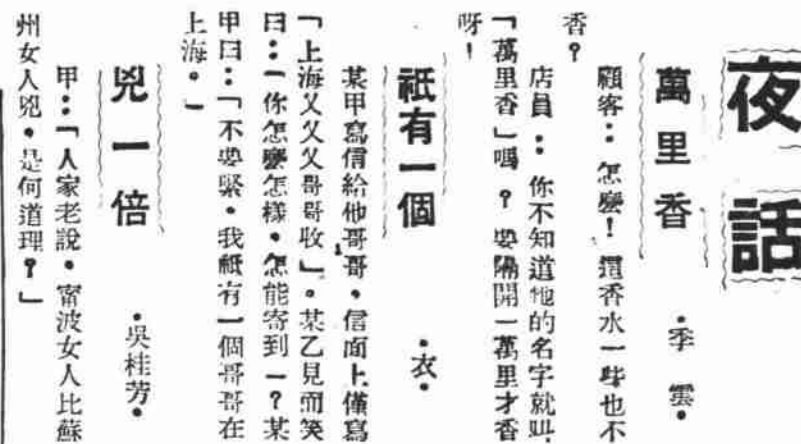 夜話
萬里香
·季雲·
顧客：怎麼！這香水一點也不
香？
店員：你不知道牠的名字就叫
「萬里香」嗎？要隔開一萬里才香
呀！
祇有一個
·衣·
某甲寫信給他哥哥，信面上僅寫
「上海又又又哥哥收」。某乙見而笑
曰：「你怎麼怎樣，怎能寄到一？某
甲曰：「不要緊，我祇有一個哥哥在
上海。」
兇一倍
·吳桂芳·
甲：「人家老說，甯波女人比蘇
州女人兇，是何道理？」